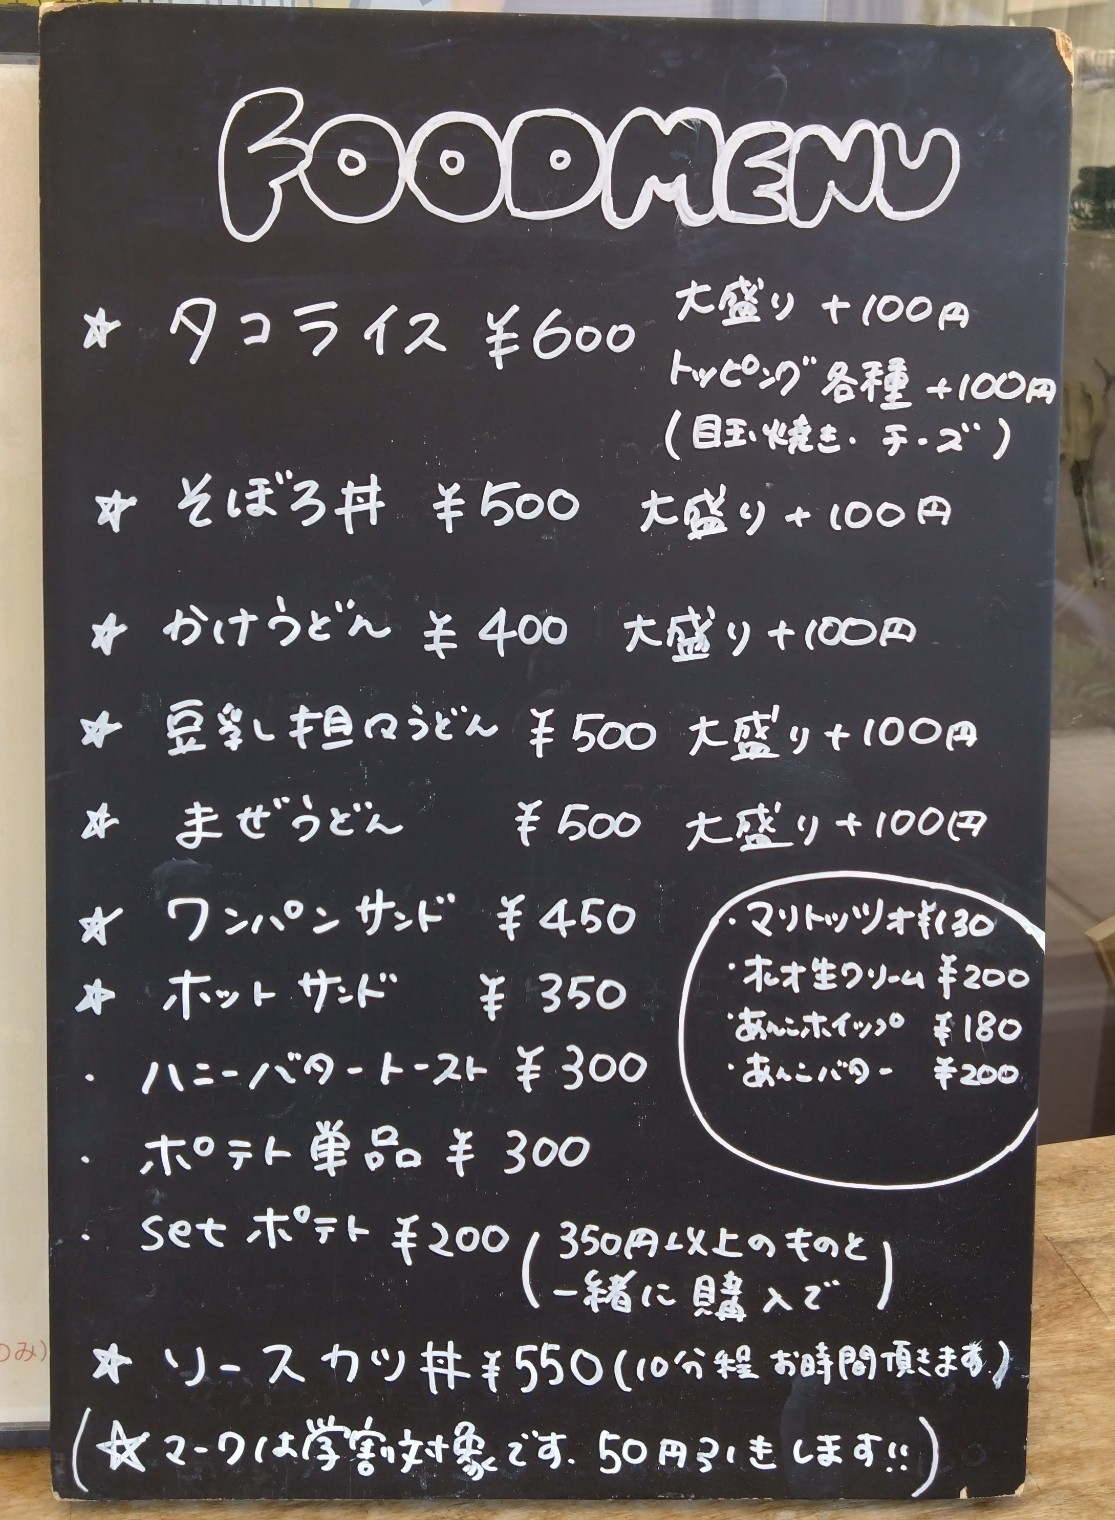 FOODMENU
☆ タコライス ¥600 大盛り +100円
トッピング各種 +100円
(目玉焼き・チーズ)
☆ そぼろ丼 ¥500 大盛り +100円
☆ かけうどん ¥400 大盛り +100円
☆ 豆乳し担々うどん ¥500 大盛り +100円
☆ まぜうどん ¥500 大盛り +100円
☆ ワンパンサンド ¥450
☆ ホットサンド ¥350
・ハニーバタートースト ¥300
・ポテト単品 ¥300
・set ポテト ¥200 (350円以上のものと
一緒に購入で)
・マリトッツオ ¥130
・オレオ生クリーム ¥200
・あんこホイップ ¥180
・あんこバター ¥200
☆ ソースカツ丼 ¥550 (10分程お時間頂きます)
(☆マークは学割対象です. 50円引きします!!)
のみ)